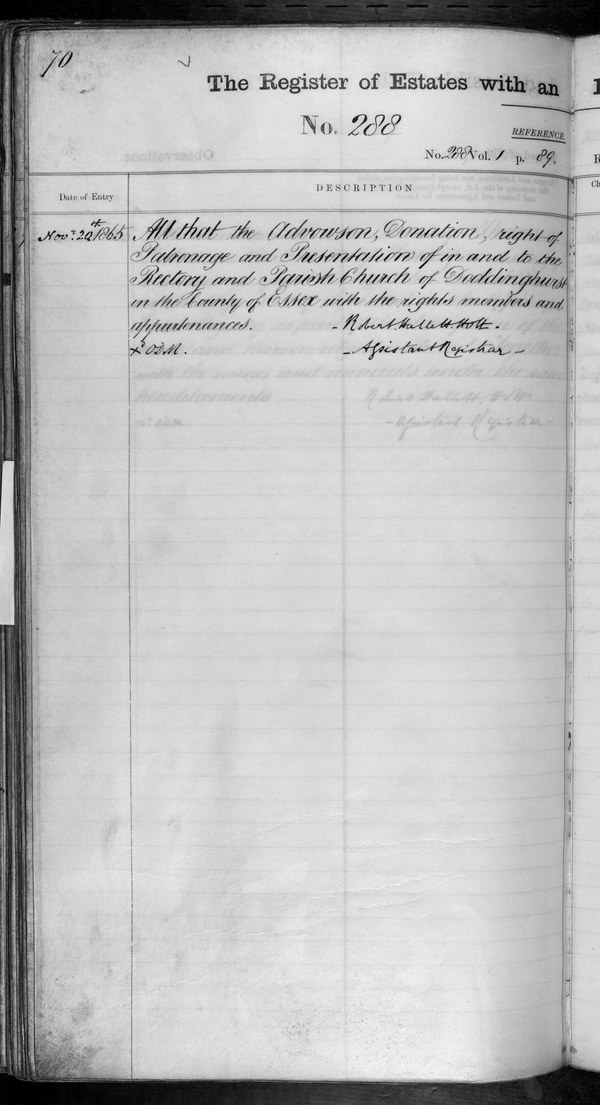 70
The Register of Estates with an
No. 288
REFERENCE
No. 288 Vol. 1 p. 89.
Date of Entry
DESCRIPTION
Novr. 20th 1865
All that the Advowson, Donation, right of
Patronage and Presentation of in and to the
Rectory and Parish Church of Doddinghurst
in the County of Essex with the rights members and
appurtenances. - Robert Hallett Holt -
- Assistant Registrar -